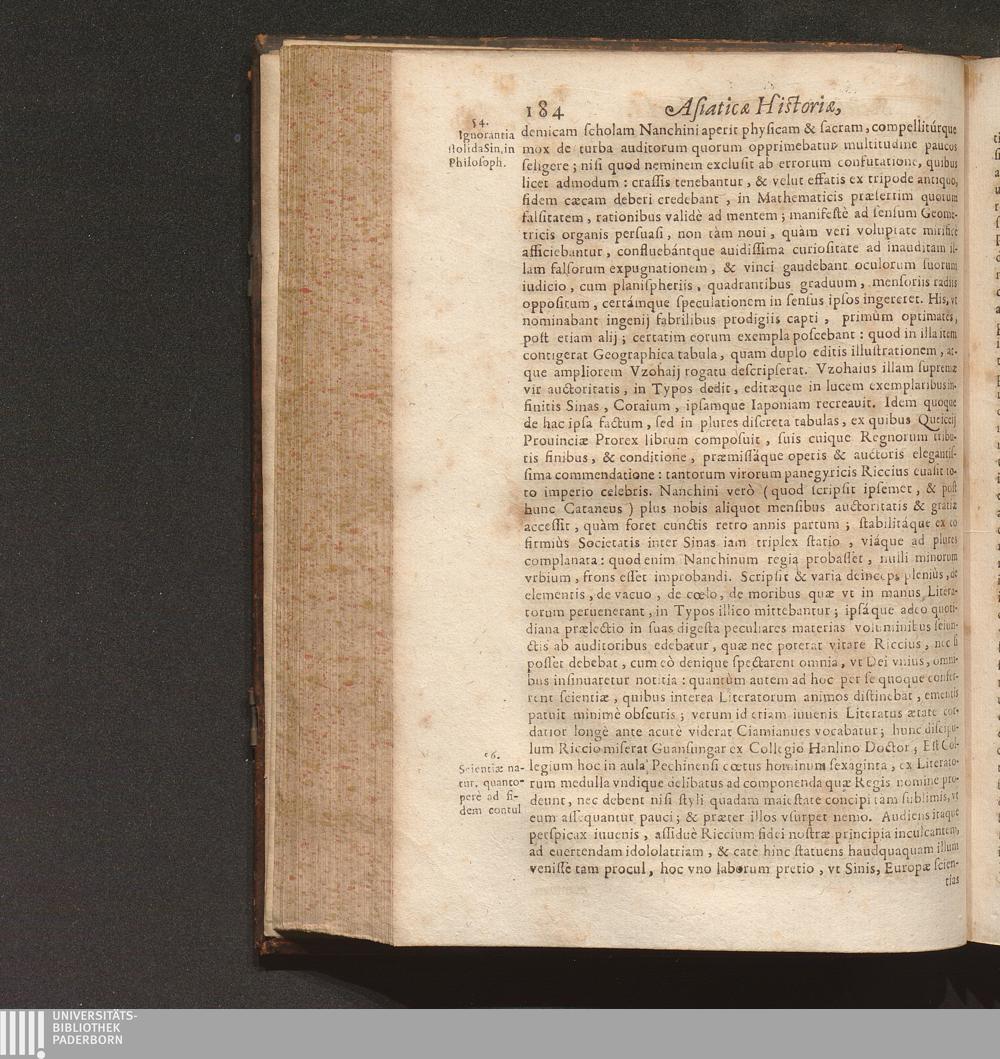 184 Asiaticæ Historiæ,
54.
Ignorantia
stolida Sin. in
Philosoph.
demicam scholam Nanchini aperit physicam & sacram, compellitúrque
mox de turba auditorum quorum opprimebatur multitudine paucos
seligere; nisi quod neminem exclusit ab errorum confutatione, quibus
licet admodum: crassis tenebantur, & velut effatis ex tripode antiquo,
fidem cæcam deberi credebant, in Mathematicis præsertim quorum
falsitatem, rationibus validè ad mentem; manifestè ad sensum Geome-
tricis organis persuasi, non tàm noui, quàm veri voluptate mirificè
afficiebantur, confluebántque auidissima curiositate ad inauditam il-
lam falsorum expugnationem, & vinci gaudebant oculorum suorum
iudicio, cum planispheriis, quadrantibus graduum, mensoriis radiis
oppositum, certámque speculationem in sensus ipsos ingereret. His, vt
nominabant ingenij fabrilibus prodigiis capti, primùm optimates,
post etiam alij; certatim eorum exempla poscebant: quod in illa item
contigerat Geographica tabula, quam duplo editis illustrationem, at-
que ampliorem Vzohaij rogatu descripserat. Vzohaius illam supremæ
vir auctoritatis, in Typos dedit, editæque in lucem exemplaribus in-
finitis Sinas, Coraium, ipsamque Iaponiam recreauit. Idem quoque
de hac ipsa factum, sed in plures discreta tabulas, ex quibus Queiceij
Prouinciæ Prorex librum composuit, suis cuique Regnorum tribu-
tis finibus, & conditione, præmissáque operis & auctoris elegantis-
sima commendatione: tantorum virorum panegyricis Riccius euasit to-
to imperio celebris. Nanchini verò (quod scripsit ipsemet, & post
hunc Cataneus) plus nobis aliquot mensibus auctoritatis & gratiæ
accessit, quàm foret cunctis retro annis partum; stabilitáque ex eo
firmiùs Societatis inter Sinas iam triplex statio, viáque ad plures
complanata: quod enim Nanchinum regia probasset, nulli minorum
vrbium, frons esset improbandi. Scripsit & varia deinceps plenius, de
elementis, de vacuo, de cœlo, de moribus quæ vt in manus Litera-
torum peruenerant, in Typos illico mittebantur; ipsáque adeo quoti-
diana prælectio in suas digesta peculiares materias voluminibus seiun-
ctis ab auditoribus edebatur, quæ nec poterat vitare Riccius, nec si
posset debebat, cum eò denique spectarent omnia, vt Dei vnius, omni-
bus insinuaretur notitia: quantùm autem ad hoc per se quoque confer-
rent scientiæ, quibus interea Literatorum animos distinebat, ementis
patuit minimè obscuris; verum id etiam iuuenis Literatus ætate cor-
datior longè ante acutè viderat Ciamianues vocabatur; hunc discipu-
lum Riccio miserat Guansungar ex Collegio Hanlino Doctor; Est Col-
56.
Scientiæ na-
tur. quanto-
perè ad fi-
dem contul
legium hoc in aula Pechinensi cœtus hominum sexaginta, ex Literato-
rum medulla vndique delibatus ad componenda quæ Regis nomine pro-
deunt, nec debent nisi styli quadam maiestate concipi tam sublimis, vt
eum assequantur pauci; & præter illos vsurpet nemo. Audiens itaque
perspicax iuuenis, assiduè Riccium fidei nostræ principia inculcantem,
ad euertendam idololatriam, & catè hinc statuens haudquaquam illum
venisse tam procul, hoc vno laborum pretio, vt Sinis, Europæ scien-
tias
UNIVERSITÄTS-
BIBLIOTHEK
PADERBORN